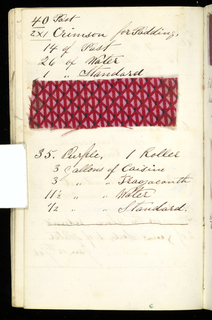 40 Past
2x1 Crimson for Padding,
14 of Past
26 of Water
1 " Standard
35. Purple, 1 Roller
3 Gallons of Caisine
3 " " Tragacanth
11½ " " Water
½ " " Standard.